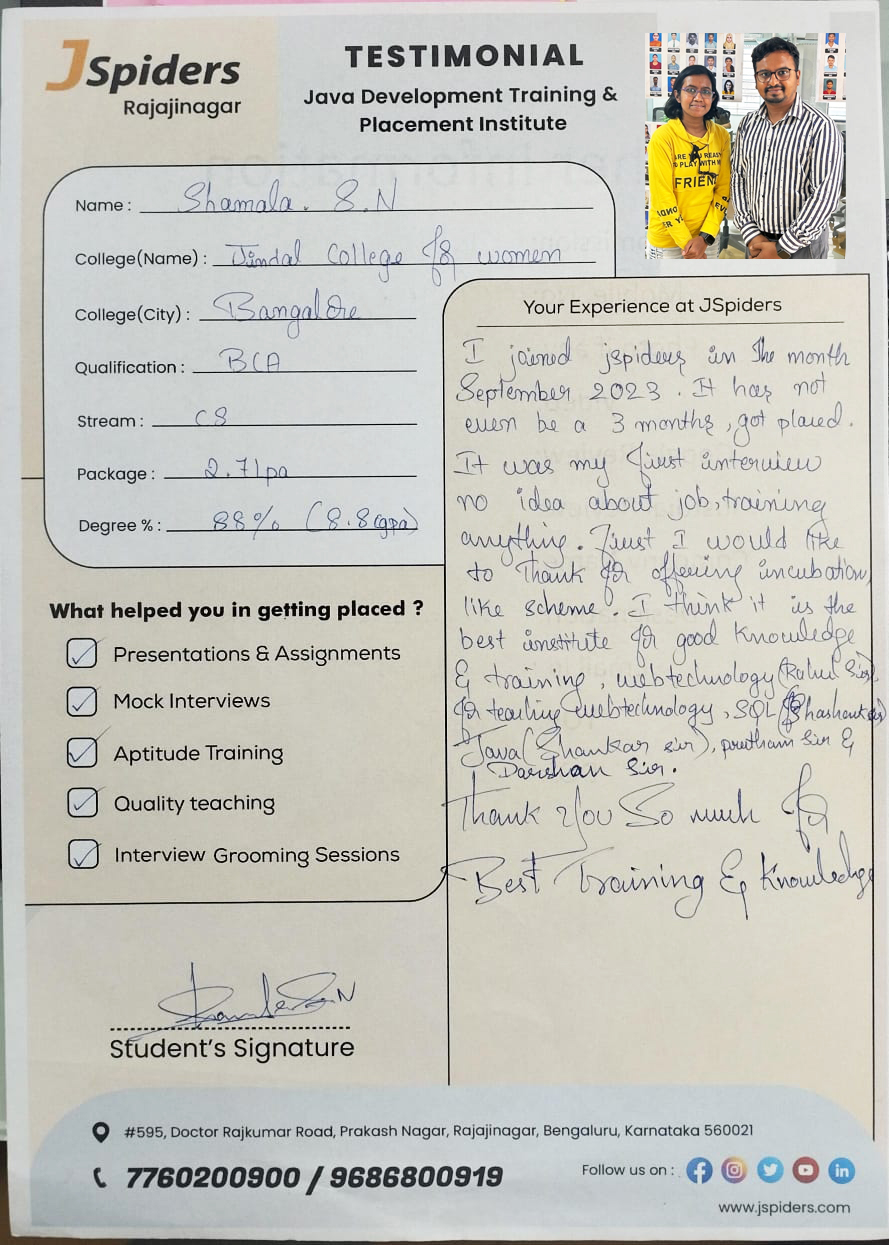 JSpiders
Rajajinagar
TESTIMONIAL
Java Development Training &
Placement Institute
Name : Shamala. S.N
College(Name) : Jindal College for women
College(City) : Bangalore
Qualification : BCA
Stream : CS
Package : 2.7lpa
Degree % : 88% (8.8cgpa)
What helped you in getting placed ?
Presentations & Assignments
Mock Interviews
Aptitude Training
Quality teaching
Interview Grooming Sessions
Student's Signature
Your Experience at JSpiders
I joined jspiders in the month
September 2023. It has not
even be a 3 months, got placed.
It was my first interview
no idea about job, training
anything. First I would like
to thank for offering incubation,
like scheme. I think it is the
best institute for good knowledge
& training, webtechnology (Rahul Sir)
for teaching webtechnology, SQL (Shashank sir)
Java (Shankar sir), preetham Sir &
Darshan Sir.
Thank You So much for
Best Training & Knowledge
#595, Doctor Rajkumar Road, Prakash Nagar, Rajajinagar, Bengaluru, Karnataka 560021
7760200900 / 9686800919
Follow us on :
www.jspiders.com